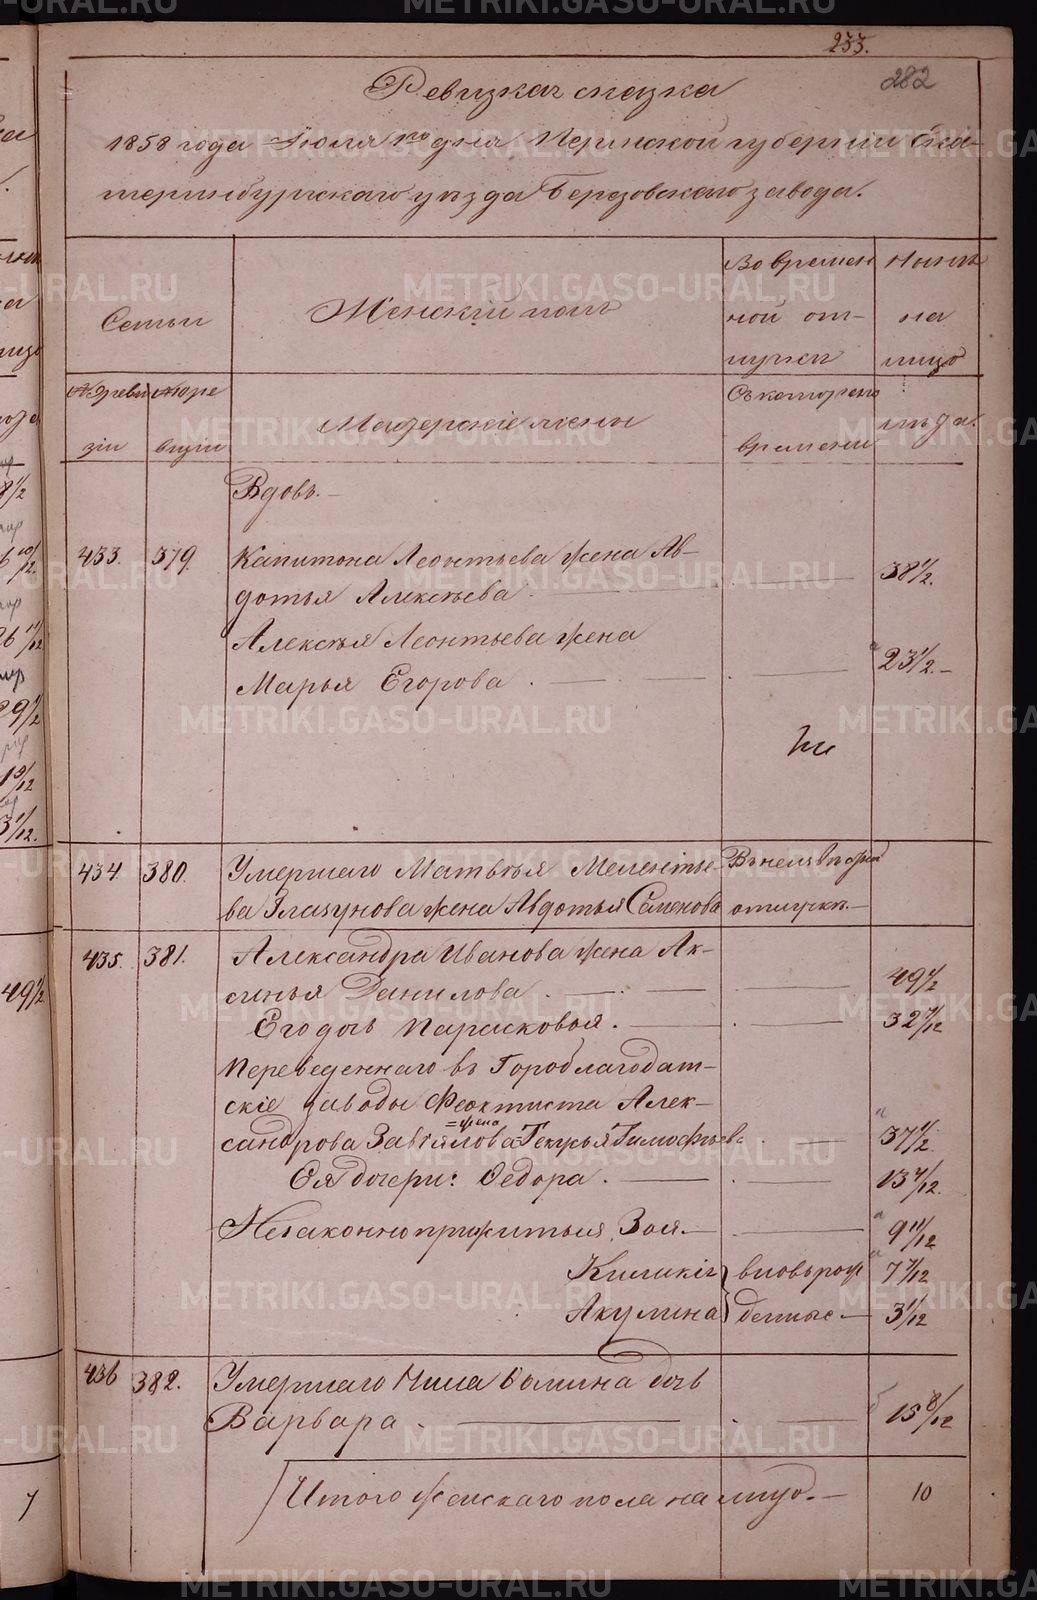 METRIKI.GASO-URAL.RU
233.
282
Ревизкая сказка
1858 года Іюля 1го дня, Пермской губерніи Ека-
теринбургскаго уѣзда Березовскаго завода.
Семьи
Женскій полъ
Во времен
ной от-
лучки
Нынѣ
на
лицо
По реви
зіи
По ре
визіи
Мастерскіе жены
Съ котораго
времени
лѣта.
Вдовъ.—
433. 379. Капитона Леонтьева жена Ав-
дотья Алексѣева. 38 1/2.
Алексѣя Леонтьева жена
Марья Егорова. 23 1/2.
434 380. Умершаго Матвѣя Мелентье-
ва Глазунова жена Авдотья Семенова
отлучкѣ.—
435. 381. Александра Иванова жена Ак-
синья Данилова. 49 1/2
Его дочь Парасковья. 32 7/12
Переведеннаго въ Гороблагодат-
скіе заводы Феоктиста Алек-
=жена
сандрова Завьялова Гликерья Тимофѣева 37 1/2.
Ея дочери: Федора. 13 7/12.
Незаконноприжитыя, Зоя.— 9 11/12
Киликія вновьрож 7 7/12
Акулина денные— 3 1/12
436 382. Умершаго Нила Фомина дочь
Варвара. 15 8/12
Итого женскаго пола на лицо.— 10